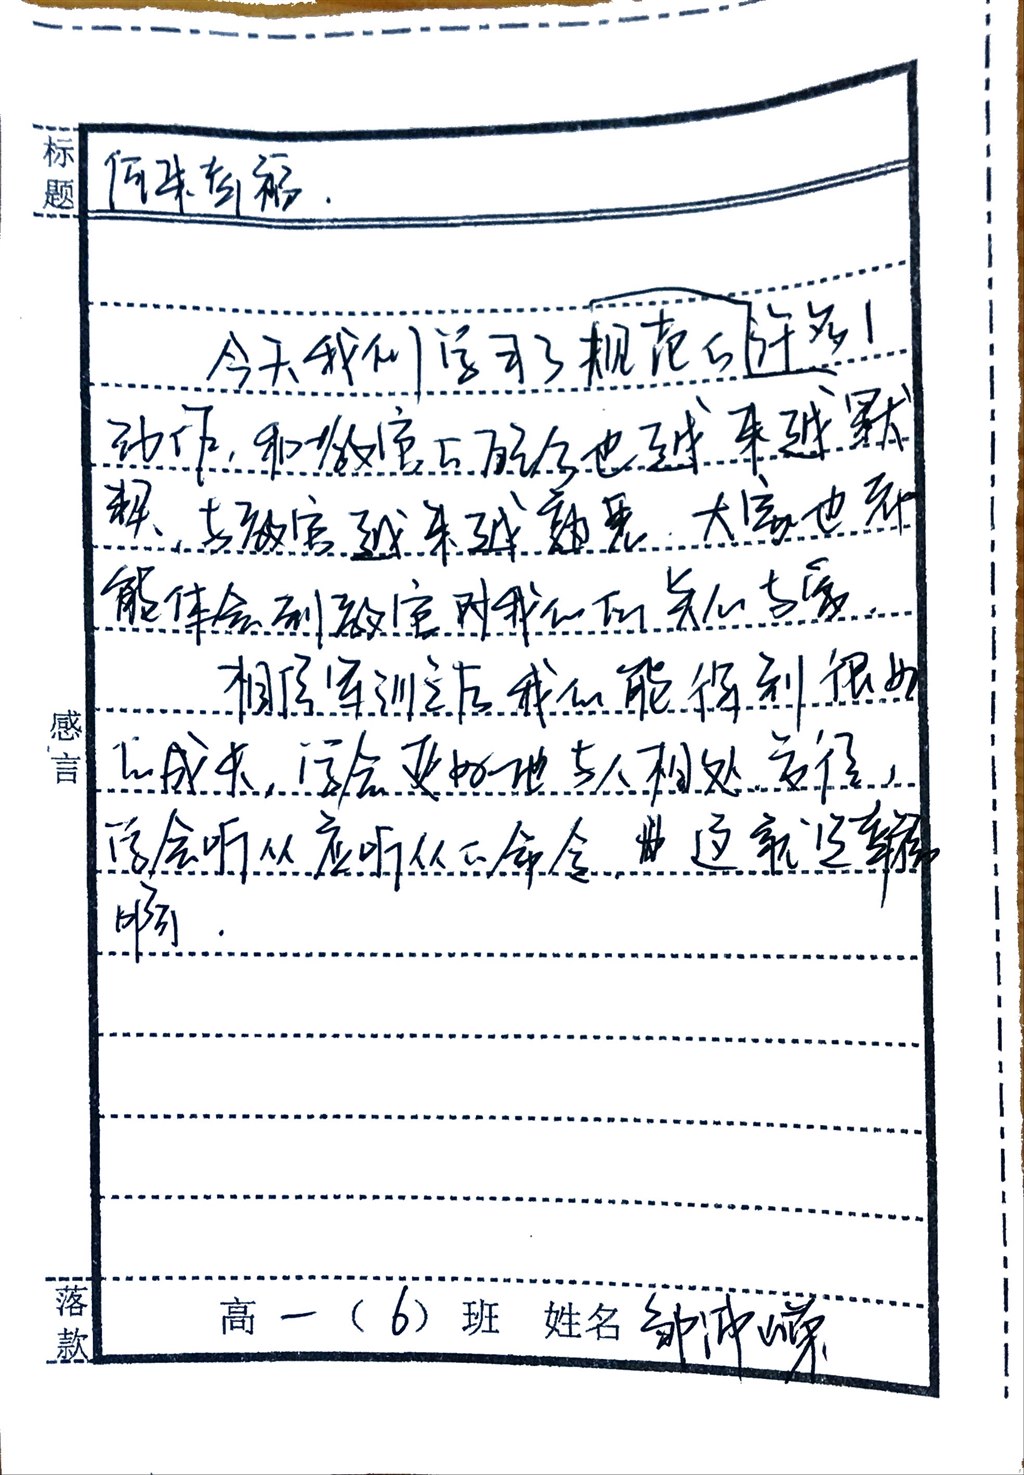 标题
何来幸福.
今天我们学习了规范的许多
动作,和教官的配合也越来越默
契,与教官越来越熟悉.大家也都
能体会到教官对我们的关心与爱.
相信军训之后我们能得到很好
的成长,学会更好地与人相处,交往,
学会听从应听从的命令.这就是幸福
啊.
感言
落款
高一(6)班 姓名